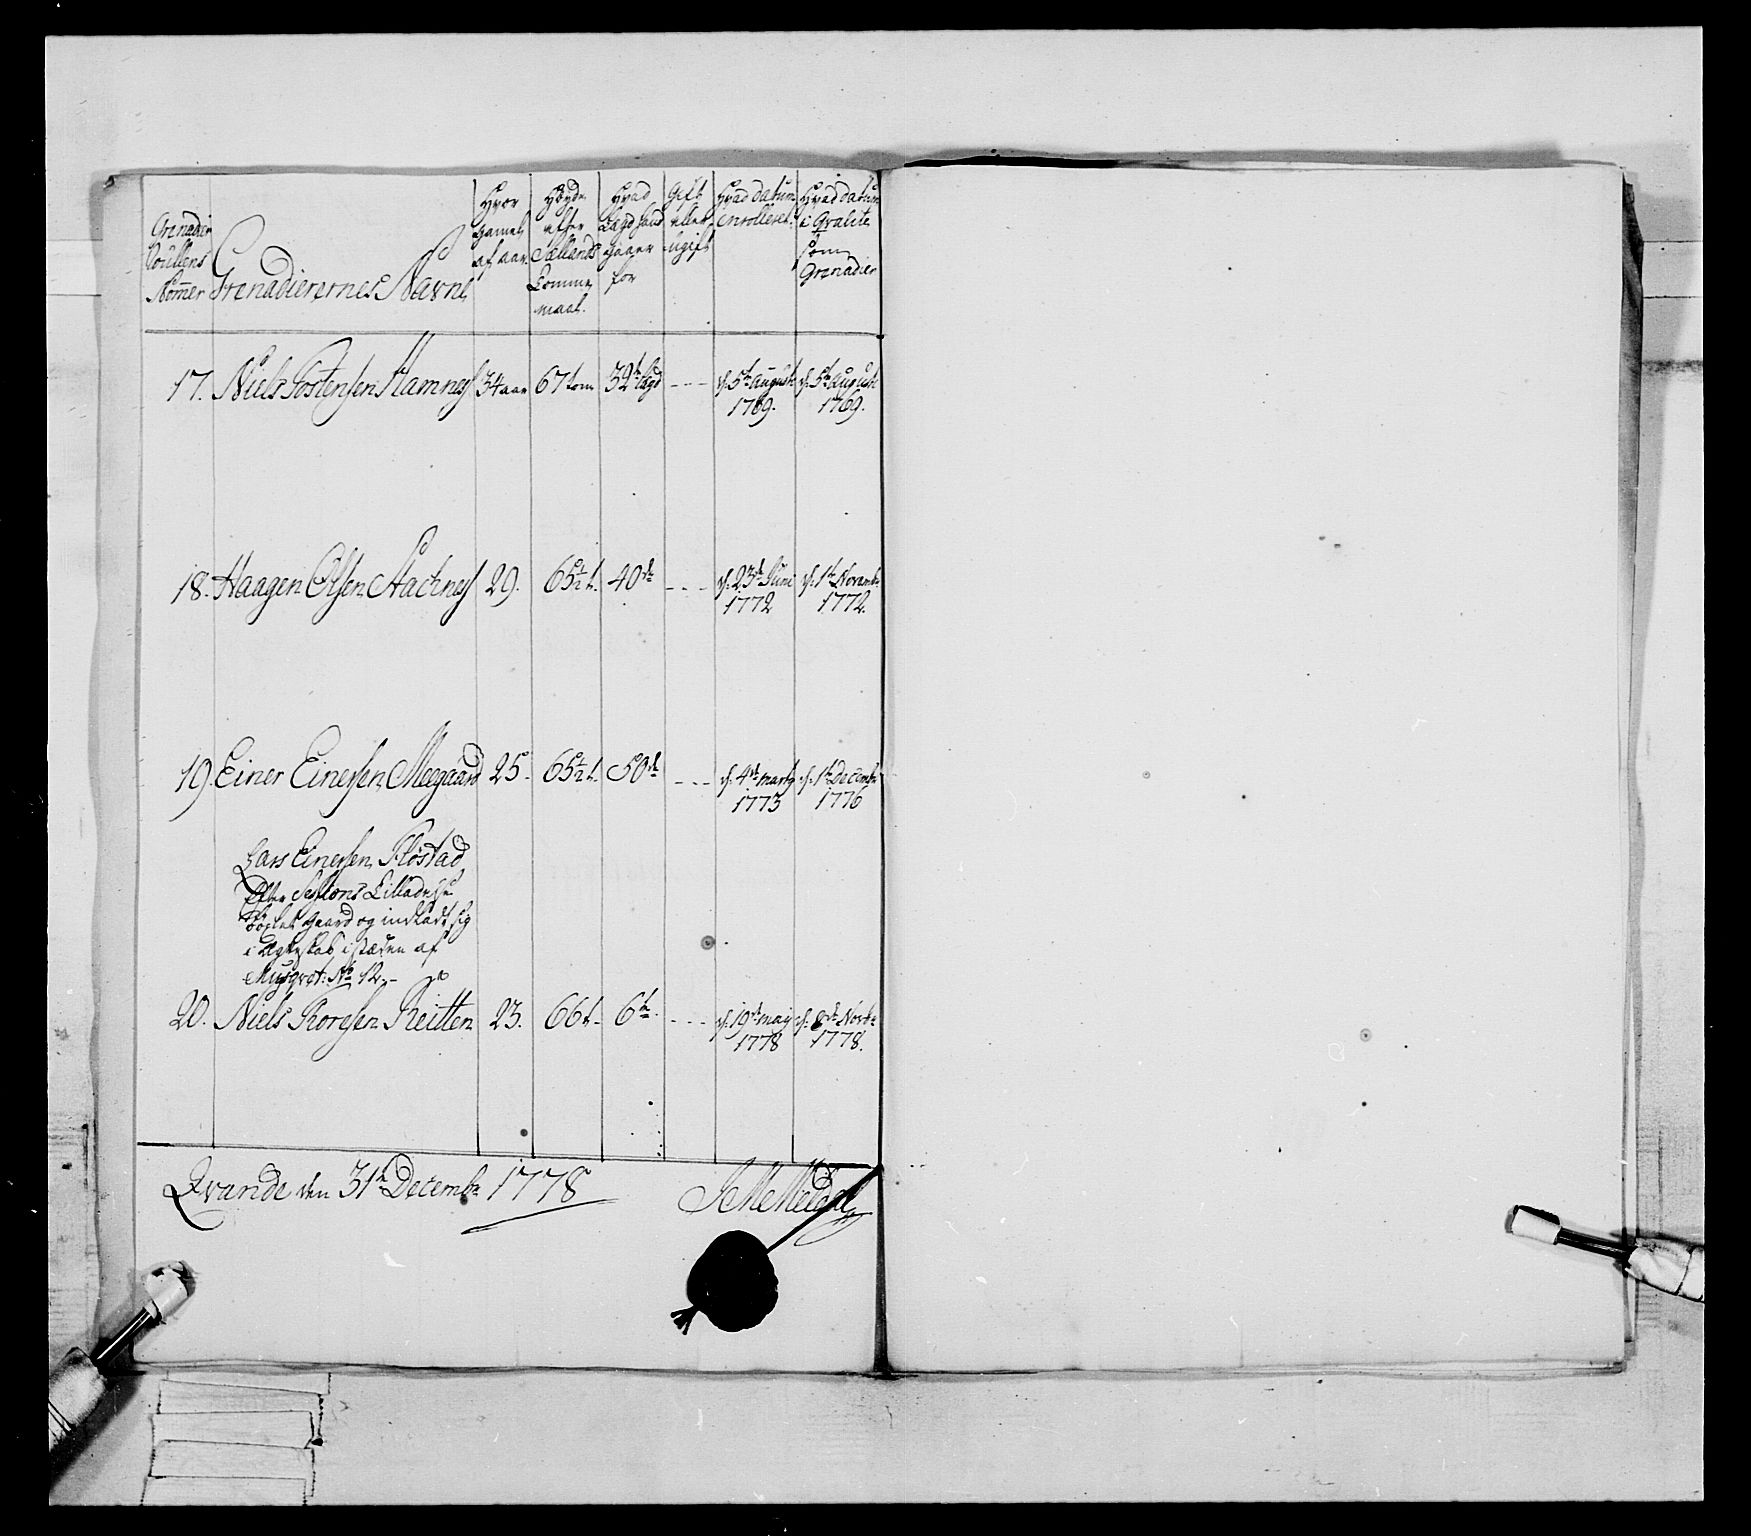 Grenadier
Rullens
Nomer
Grenadierernes Navne
Hvor
gamel
af aar
Høyde
efter
Sællands
Tomme
maal.
Hvad
Lægd hand
staaer
for
Gift
eller
ugift
Hvad datum
enrolleret.
Hvad datum
i Qvalite
som
Grenadier
17. Niels Tostensen Hamnes 34 aar 67 tom 32te Lægd - - - d. 5te August 1769. d. 5te August 1769.
18. Haagen Olsen 29. 65½ t. 40de - - - d. 23de Juni 1772 d. 1te Novembr 1772.
19. Einer Einersen Meegaard 25. 65½ t. 50de - - - d. 4de Marty 1773 d. 1te Decembr 1776
Lars Einersen Flostad
Efter Sessions Tilladelse
Gaard og indladt sig
i Ægteskab, i stæden af
No 12.-
20. Niels Toresen Reitten 23. 66 t. 6te - - - d. 19de May 1778 d. 8de Novbr 1778.
Qvande den 31te Decembr 1778